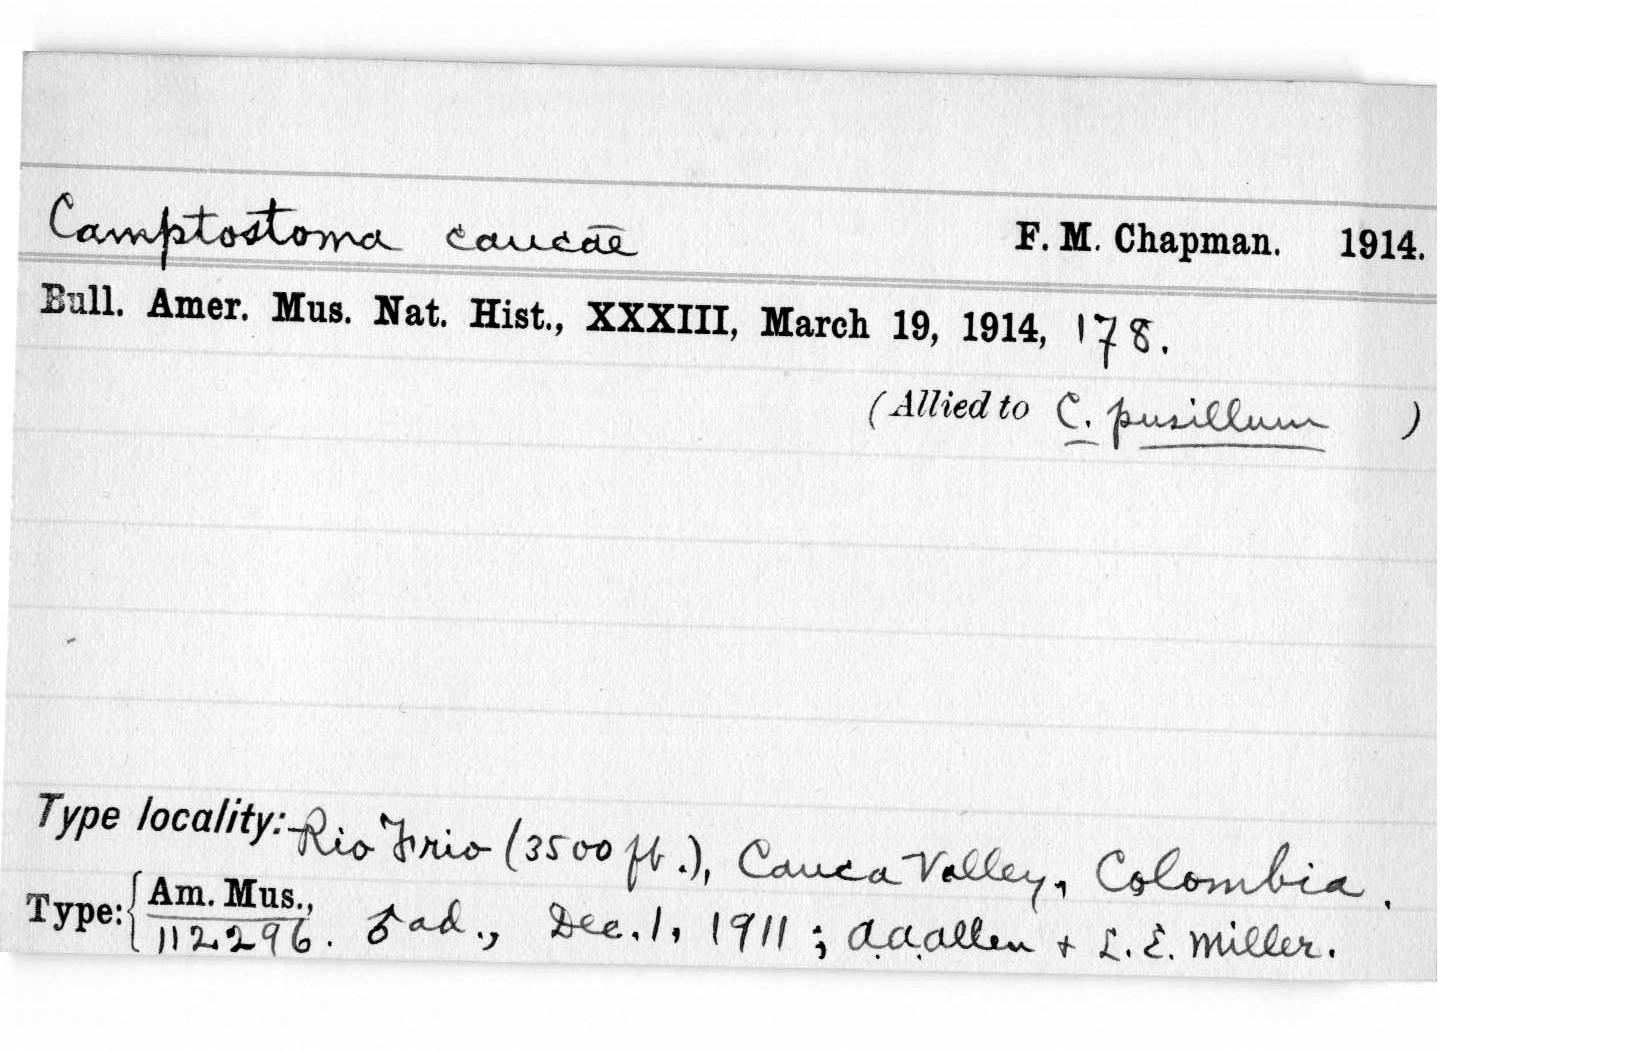 Camptostoma caucae F. M. Chapman. 1914.
Bull. Amer. Mus. Nat. Hist., XXXIII, March 19, 1914, 178.
(Allied to C. pusillum )
Type locality:- Rio Frio (3500 ft.), Cauca Valley, Colombia.
Type: { Am. Mus., 112296. ♂ ad., Dec. 1, 1911; A.A. Allen + L. E. Miller.